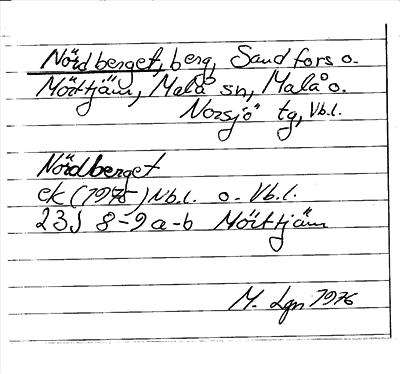 Nördberget, berg, Sandfors o.
Mörttjärn, Malå sn, Malå o.
Norsjö tg, Vb.l.
Nördberget
ek (1975) Nb.l. o. Vb.l.
23J 8-9 a-b Mörttjärn
M. Lgn 1976